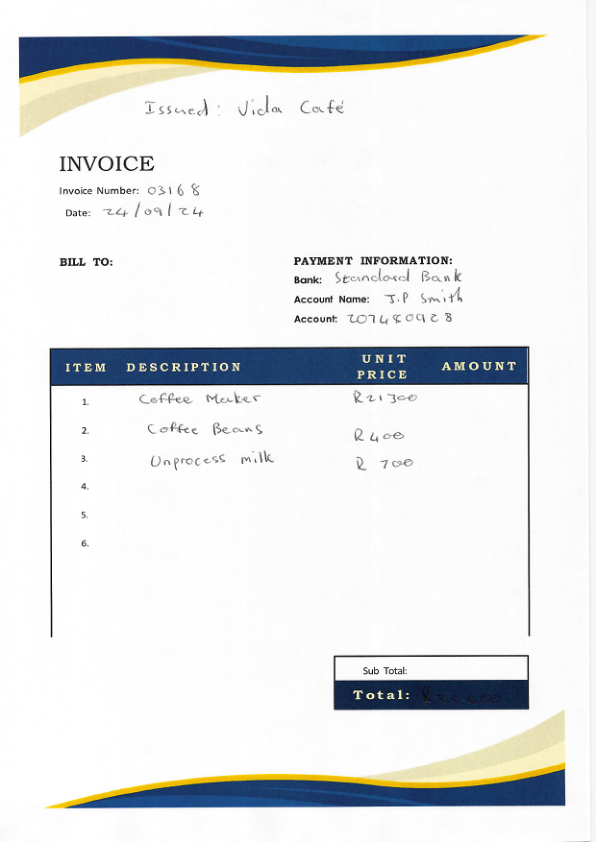 Issued: Vida Café
INVOICE
Invoice Number: 03168
Date: 24/09/24
BILL TO:
PAYMENT INFORMATION:
Bank: Standard Bank
Account Name: J.P Smith
Account: 207480928
ITEM DESCRIPTION UNIT PRICE AMOUNT
1. Coffee Maker R21300
2. Coffee Beans R400
3. Unprocess milk R 700
4.
5.
6.
Sub Total:
Total: